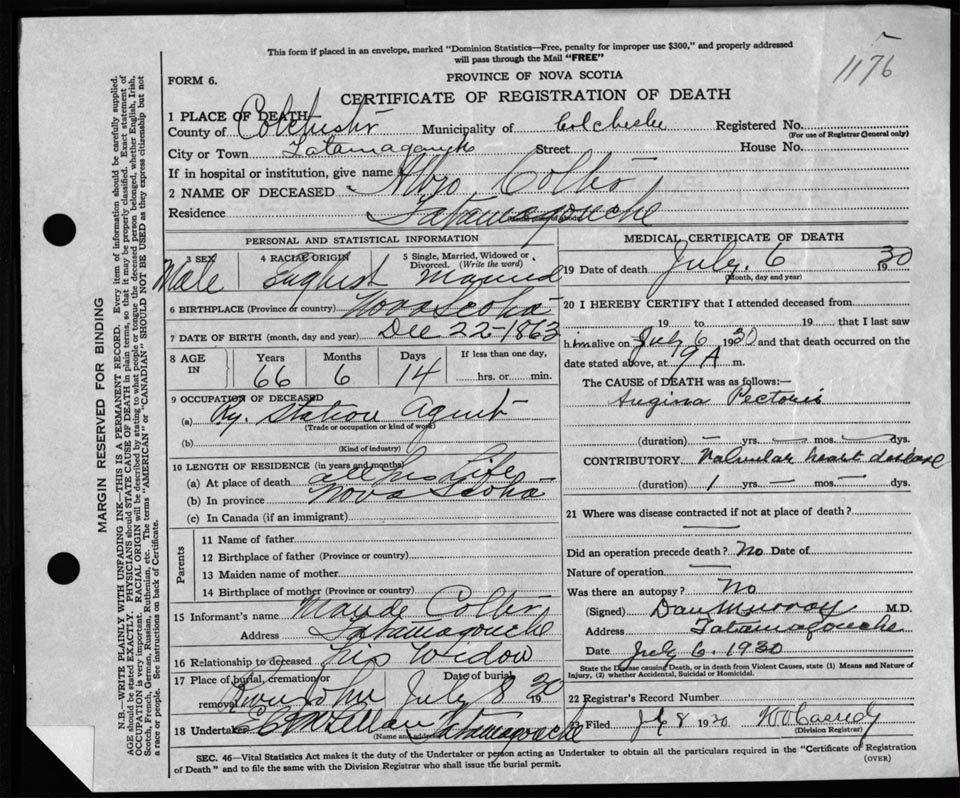 This form if placed in an envelope, marked "Dominion Statistics—Free, penalty for improper use $300," and properly addressed
will pass through the Mail "FREE"
1176
FORM 6.
PROVINCE OF NOVA SCOTIA
CERTIFICATE OF REGISTRATION OF DEATH
1 PLACE OF DEATH
County of Colchester Municipality of Colchester Registered No.
(For use of Registrar General only)
City or Town Tatamagouche Street House No.
If in hospital or institution, give name
2 NAME OF DECEASED
Residence Tatamagouche
PERSONAL AND STATISTICAL INFORMATION
3 SEX 4 RACIAL ORIGIN 5 Single, Married, Widowed or Divorced. (Write the word)
Male English Married
6 BIRTHPLACE (Province or country) Nova Scotia
7 DATE OF BIRTH (month, day and year) Dec 22-1863
8 AGE IN Years Months Days If less than one day,
66 6 14 hrs. or min.
9 OCCUPATION OF DECEASED
(a) Ry. Station Agent
(Trade or occupation or kind of work)
(b)
(Kind of industry)
10 LENGTH OF RESIDENCE (in years and months)
(a) At place of death all his life
(b) In province Nova Scotia
(c) In Canada (if an immigrant)
Parents
11 Name of father
12 Birthplace of father (Province or country)
13 Maiden name of mother
14 Birthplace of mother (Province or country)
15 Informant's name Maude
Address Tatamagouche
16 Relationship to deceased his Widow
17 Place of burial, cremation or removal Date of burial
River John July 8 19 30
18 Undertaker Tatamagouche
MEDICAL CERTIFICATE OF DEATH
19 Date of death July 6 1930
(Month, day and year)
20 I HEREBY CERTIFY that I attended deceased from
19 to 19 that I last saw
him alive on July 6 1930 and that death occurred on the
date stated above, at A m.
The CAUSE OF DEATH was as follows:—
Angina Pectoris
(duration) — yrs. — mos. — dys.
CONTRIBUTORY Valvular heart disease
(duration) 1 yrs. — mos. — dys.
21 Where was disease contracted if not at place of death?
Did an operation precede death? No Date of
Nature of operation —
Was there an autopsy? No
(Signed) Dan Murray M.D.
Address Tatamagouche
Date July 6. 1930
State the Disease causing Death, or in death from Violent Causes, state (1) Means and Nature of
Injury, (2) whether Accidental, Suicidal or Homicidal.
22 Registrar's Record Number
23 Filed July 8 1930
(Division Registrar)
SEC. 46—Vital Statistics Act makes it the duty of the Undertaker or person acting as Undertaker to obtain all the particulars required in the "Certificate of Registration
of Death" and to file the same with the Division Registrar who shall issue the burial permit.
(OVER)
MARGIN RESERVED FOR BINDING
N.B.—WRITE PLAINLY WITH UNFADING INK—THIS IS A PERMANENT RECORD. Every item of information should be carefully supplied.
AGE should be stated EXACTLY. PHYSICIANS should STATE CAUSE OF DEATH in plain terms, so that it may be properly classified. Exact statement of
OCCUPATION is very important. RACIAL ORIGIN will be described by stating to what people or tongue the deceased person belonged, whether English, Irish,
Scotch, French, German, Russian, Ruthenian, etc. The terms "AMERICAN" or "CANADIAN" SHOULD NOT BE USED as they express citizenship but not
a race or people. See instructions on back of Certificate.